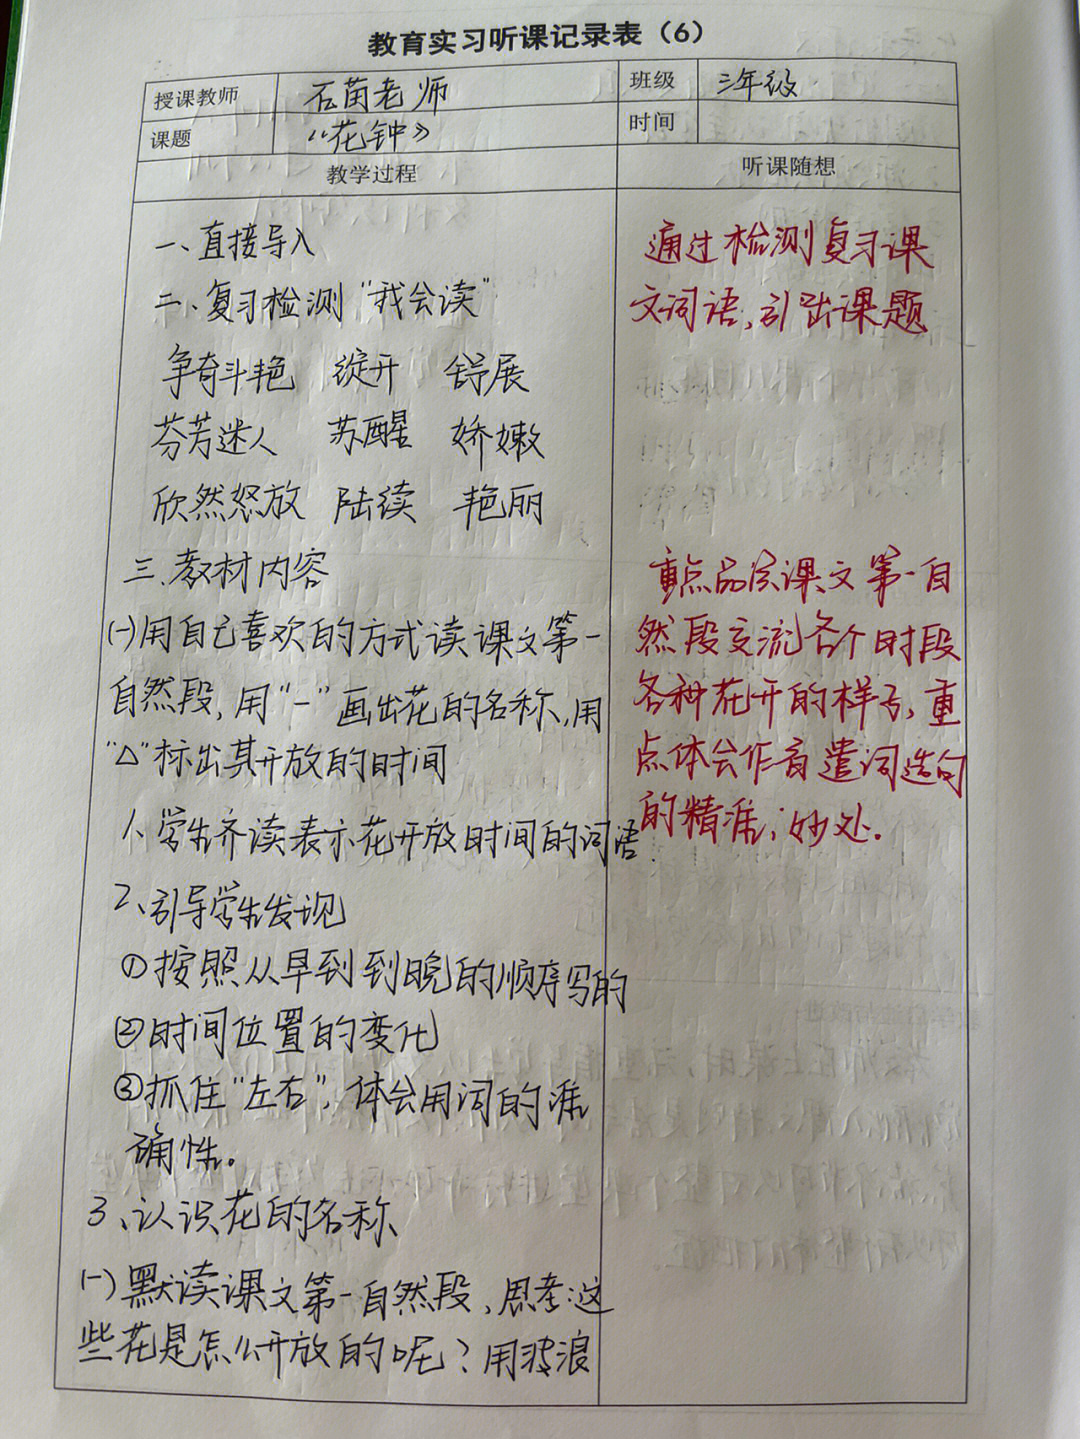 教育实习听课记录表（6）
授课教师 石茵老师 班级 三年级
课题 《花钟》 时间
教学过程 听课随想
一、直接导入
二、复习检测“我会读”
争奇斗艳 绽开 舒展
芬芳迷人 苏醒 娇嫩
欣然怒放 陆续 艳丽
三、教材内容
(一)用自己喜欢的方式读课文第一
自然段,用“一”画出花的名称,用
“△”标出其开放的时间
1、学生齐读表示花开放时间的词语
2、引导学生发现
①按照从早到到晚的顺序写的
②时间位置的变化
③抓住“左右”,体会用词的准
确性。
3、认识花的名称
(一)默读课文第一自然段,思考:这
些花是怎么开放的呢?用波浪
通过检测复习课
文词语,引出课题
重点品读课文第一自
然段交流各个时段
各种花开的样子,重
点体会作者遣词造句
的精准,妙处.